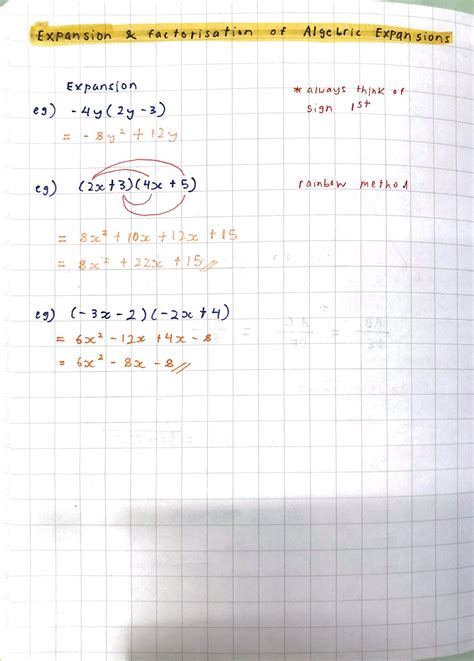 Expansion & factorisation of Algebric Expansions
Expansion
* always think of
sign 1st
eg) -4y(2y-3)
= -8y² + 12y
eg) (2x+3)(4x+5)
rainbow method
= 8x² + 10x + 12x + 15
= 8x² + 22x + 15//
eg) (-3x-2)(-2x+4)
= 6x² - 12x + 4x - 8
= 6x² - 8x - 8//